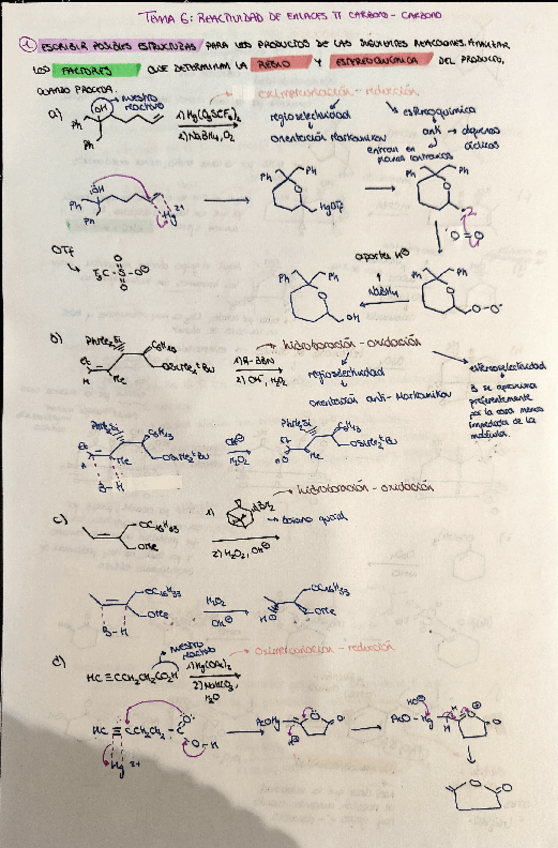 TEMA 6: REACTIVIDAD DE ENLACES π CARBONO - CARBONO
1. ESCRIBIR POSIBLES ESTRUCTURAS PARA LOS PRODUCTOS DE LAS SIGUIENTES REACCIONES. ANALIZAR
LOS FACTORES QUE DETERMINAN LA REGIO Y ESTEREOQUÍMICA DEL PRODUCTO,
CUANDO PROCEDA.
a) OH → nuestro reactivo
Ph
Ph
1) Hg(O3SCF3)2
2) NaBH4, O2
oximercuriación - reducción
regioselectividad
orientación Markovnikov
estereoquímica
anti →
entran en
planos contrarios
Ph
Ph
OH
Hg 2+
Ph Ph
O
HgOTf
Ph Ph
O
O=O
OTf
F3C-S-O⊖
O
O
aporta H
NaBH4
Ph Ph
O
OH
Ph Ph
O
O-O·
b) PhMe2Si
C6H13
Et
H
Me
OSiMe2tBu
1) 9-BBN
2) OH-, H2O2
hidroboración - oxidación
regioselectividad
orientación anti-Markovnikov
estereoselectividad
B se aproxima
preferentemente
por la cara menos
impedida de la
molécula.
PhMe2Si
C6H13
Et
H
Me
OSiMe2tBu
B-H
OH⊖
H2O2
PhMe2Si
C6H13
Et
HO
Me
OSiMe2tBu
c) OC16H33
OMe
1) BH2
2) H2O2, OH⊖
hidroboración - oxidación
borano quiral
OC16H33
OMe
B-H
H2O2
OH⊖
HO
OC16H33
OMe
d) HC≡CCH2CH2CO2H
nuestro
reactivo
1) Hg(OAc)2
2) NaHCO3,
H2O
oximercuriación - reducción
HC≡CCH2CH2-C
O
O-H
Hg 2+
AcOHg
O
O
H⊕
HO⊖
AcO-Hg
H
O
O
O
O